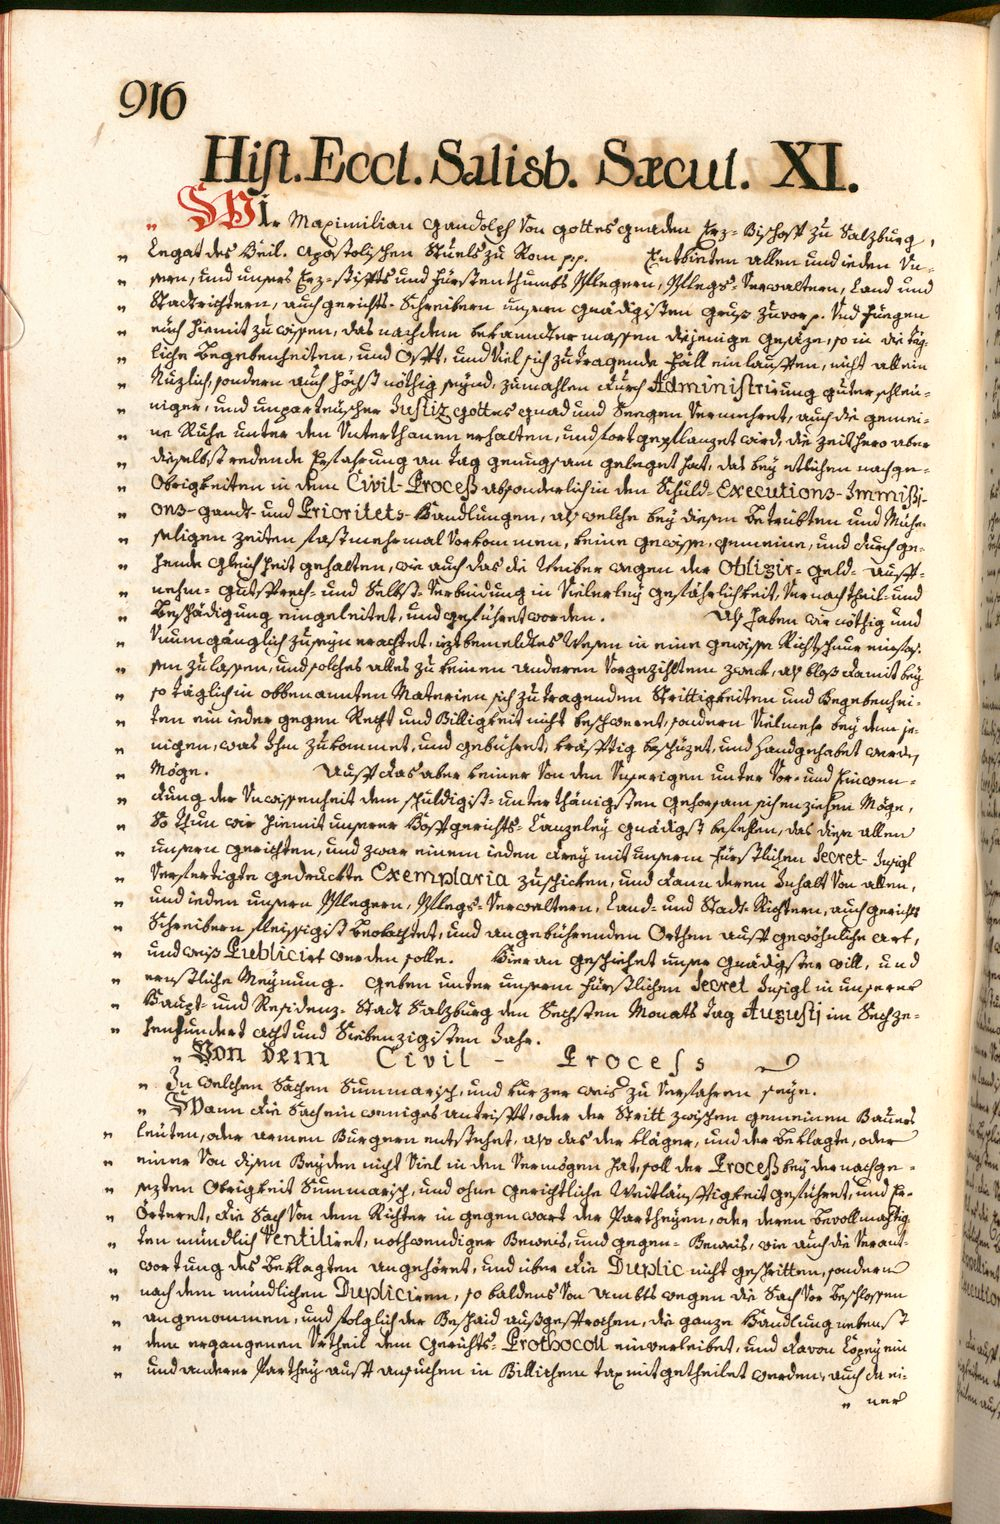 916
Hist. Eccl. Salisb. Sæcul. XI.
„ Wir Maximilian Gandolph Von Gottes gnaden Erz-Bischoff zu Salzburg,
„ Legat des Heil. Apostolischen Stuels zu Rom pp. Entbieten allen und ieden Un-
„ sern, und unsers Erz-stiffts und Fürstenthumbs Pflegern, Pflegs-Verwaltern, Land und
„ Stadtrichtern, auch gerichts-Schreibern unsern gnädigisten gruß zuvor p. Und Fuegen
„ euch hiemit zu wissen, das nachdem bekanndter massen diejenige Gesäze, so in die täg-
„ liche Begebenheiten, und Offt, und Viel sich zutragende Fäll einlauffen, nicht allein
„ Nuzlich, sondern auch höchst nöthig seynd, zumahlen durch Administrirung guter schleu-
„ niger, und unpartheyischer Justiz Gottes gnad und Seegen Vermehret, auch die gemei-
„ ne Ruhe unter den Unterthanen erhalten, und fortgepflanzet wird, die zeithero aber
„ dieselbst redende Erfahrung an tag genugsam geleget hat, das bey etlichen nachge-
„ Obrigkeiten in dem Civil-Proceß absonderlich in den Schuld-Executions-Immißi-
„ ons-gandt- und Prioritets-Handlungen, als welche bey diesen Betrübten und Mühe-
„ seligen zeiten fast mehrmal Vorkommen, keine gewisse, gemeine, und durchge-
„ hende gleichheit gehalten, wie auch das die Weiber wegen der Obligir-geld-auff-
„ nehm-gutsprech- und Selbst-Verbindung in Vielerley gefährlichkeit, Vernachtheil- und
„ Beschädigung eingeleitet, und geführet worden. Als haben wir nöthig und
„ Unumgänglich zuseyn erachtet, iezt bemeldtes Wesen in eine gewisse Richtschnur verfas-
„ sen zu lassen, und solches alles zu keinen anderen Vorgezihltem zweck, als bloß damit bey
„ so täglich in obbenannten Materien sich zutragenden Strittigkeiten und Begebenhei-
„ ten ein ieder gegen Recht und Billigkeit nicht beschweret, sondern Vielmehr bey dem je-
„ nigen, was Ihm zukommet, und gebühret, kräfftig beschüzet, und Handgehabet werden
„ Möge. Auff das aber keiner Von den Unserigen unter Vor- und Einwen-
„ dung der Unwissenheit dem schuldigist-unterthänigsten Gehorsam sich enziehen Möge,
„ So thun wir hiemit unserer Hoffgerichts-Canzeley gnädigst befehlen, das diese allen
„ unsern gerichten, und zwar einem ieden drey mit unserm Fürstlichen Secret-Insigl
„ Verfertigte gedruckte Exemplaria zuschicken, und dann deren Inhalt Von allen,
„ und ieden unsern Pflegern, Pflegs-Verwaltern, Land- und Stadt-Richtern, auch gerichts
„ Schreibern fleissigist beobachtet, und an gebührenden Orthen auff gewöhnliche art,
„ und weiß Publicirt werden solle. Hieran geschiehet unser gnädigster will, und
„ ernstliche Meynung. Geben unter unserm Fürstlichen Secret Insigl in unserer
„ Haupt- und Residenz-Stadt Salzburg den Sechsten Monats tag Augusti im Sechze-
„ henhundert acht und Siebenzigisten Jahr.
„ Von dem Civil - Process
„ In welchen Sachen Summarisch, und kurzer weis zu Verfahren seye.
„ Wann die Sach ein weniges antrifft, oder der Stritt zwischen gemeinen Bauers
„ leuten, oder armen Burgern entstehet, also das der kläger, und der Beklagte, oder
„ einer Von disen Beyden nicht Viel in den Vermögen hat, soll der Proceß bey der nachge-
„ sezten Obrigkeit Summarisch, und ohne Gerichtliche Weitläufftigkeit geführet, und Er-
„ Örteret, die Sach Von dem Richter in gegenwart der Partheyen, oder deren bevollmächtig-
„ ten mündlich Ventiliret, nothwendiger Beweis, und gegen-Beweis, wie auch die Verant-
„ wortung des Beklagten angehöret, und über die Duplic nicht geschritten, sondern
„ nach dem mündlichen Dupliciren, so baldens Von Ambts wegen die Sach Vor beschlossen
„ angenommen, und folglich der Beschaid außgesprochen, die ganze Handlung nebenst
„ dem ergangenen Urtheil dem Gerichts-Prothocoll einverleibet, und davon Copey ein
„ und anderer Parthey auff ansuchen in Billichem tax mitgetheilet werden, auch da ei-
„ ner